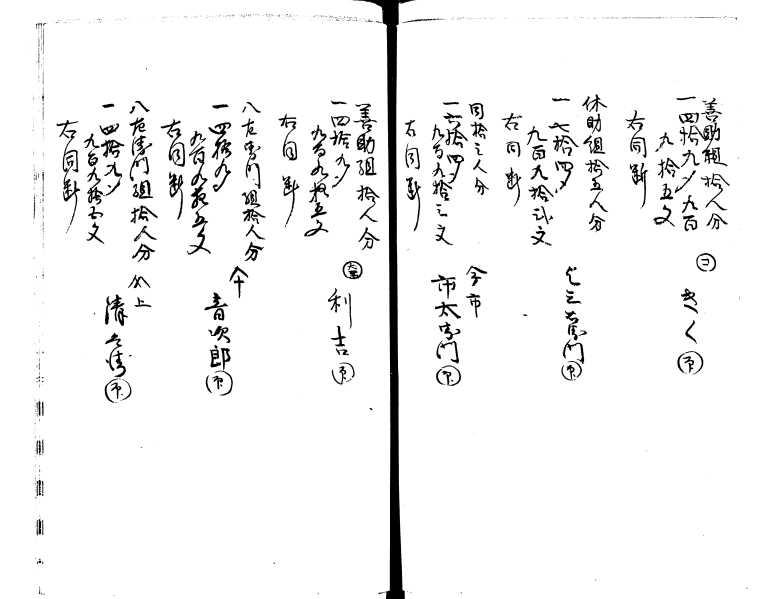 善助組拾人分
一四拾九〆九百
九拾五文
右同断
きく
休助組拾五人分
一七拾四〆
九百九拾弐文
右同断
同拾三人分
一六拾四〆
九百九拾三文
右同断
今市
市太左衛門
善助組拾人分
一四拾九〆
九百九拾五文
右同断
利吉
八左衛門組拾人分
一四拾九〆
九百九拾五文
右同断
音次郎
八左衛門組拾人分
一四拾九〆
九百九拾五文
右同断
清兵衛